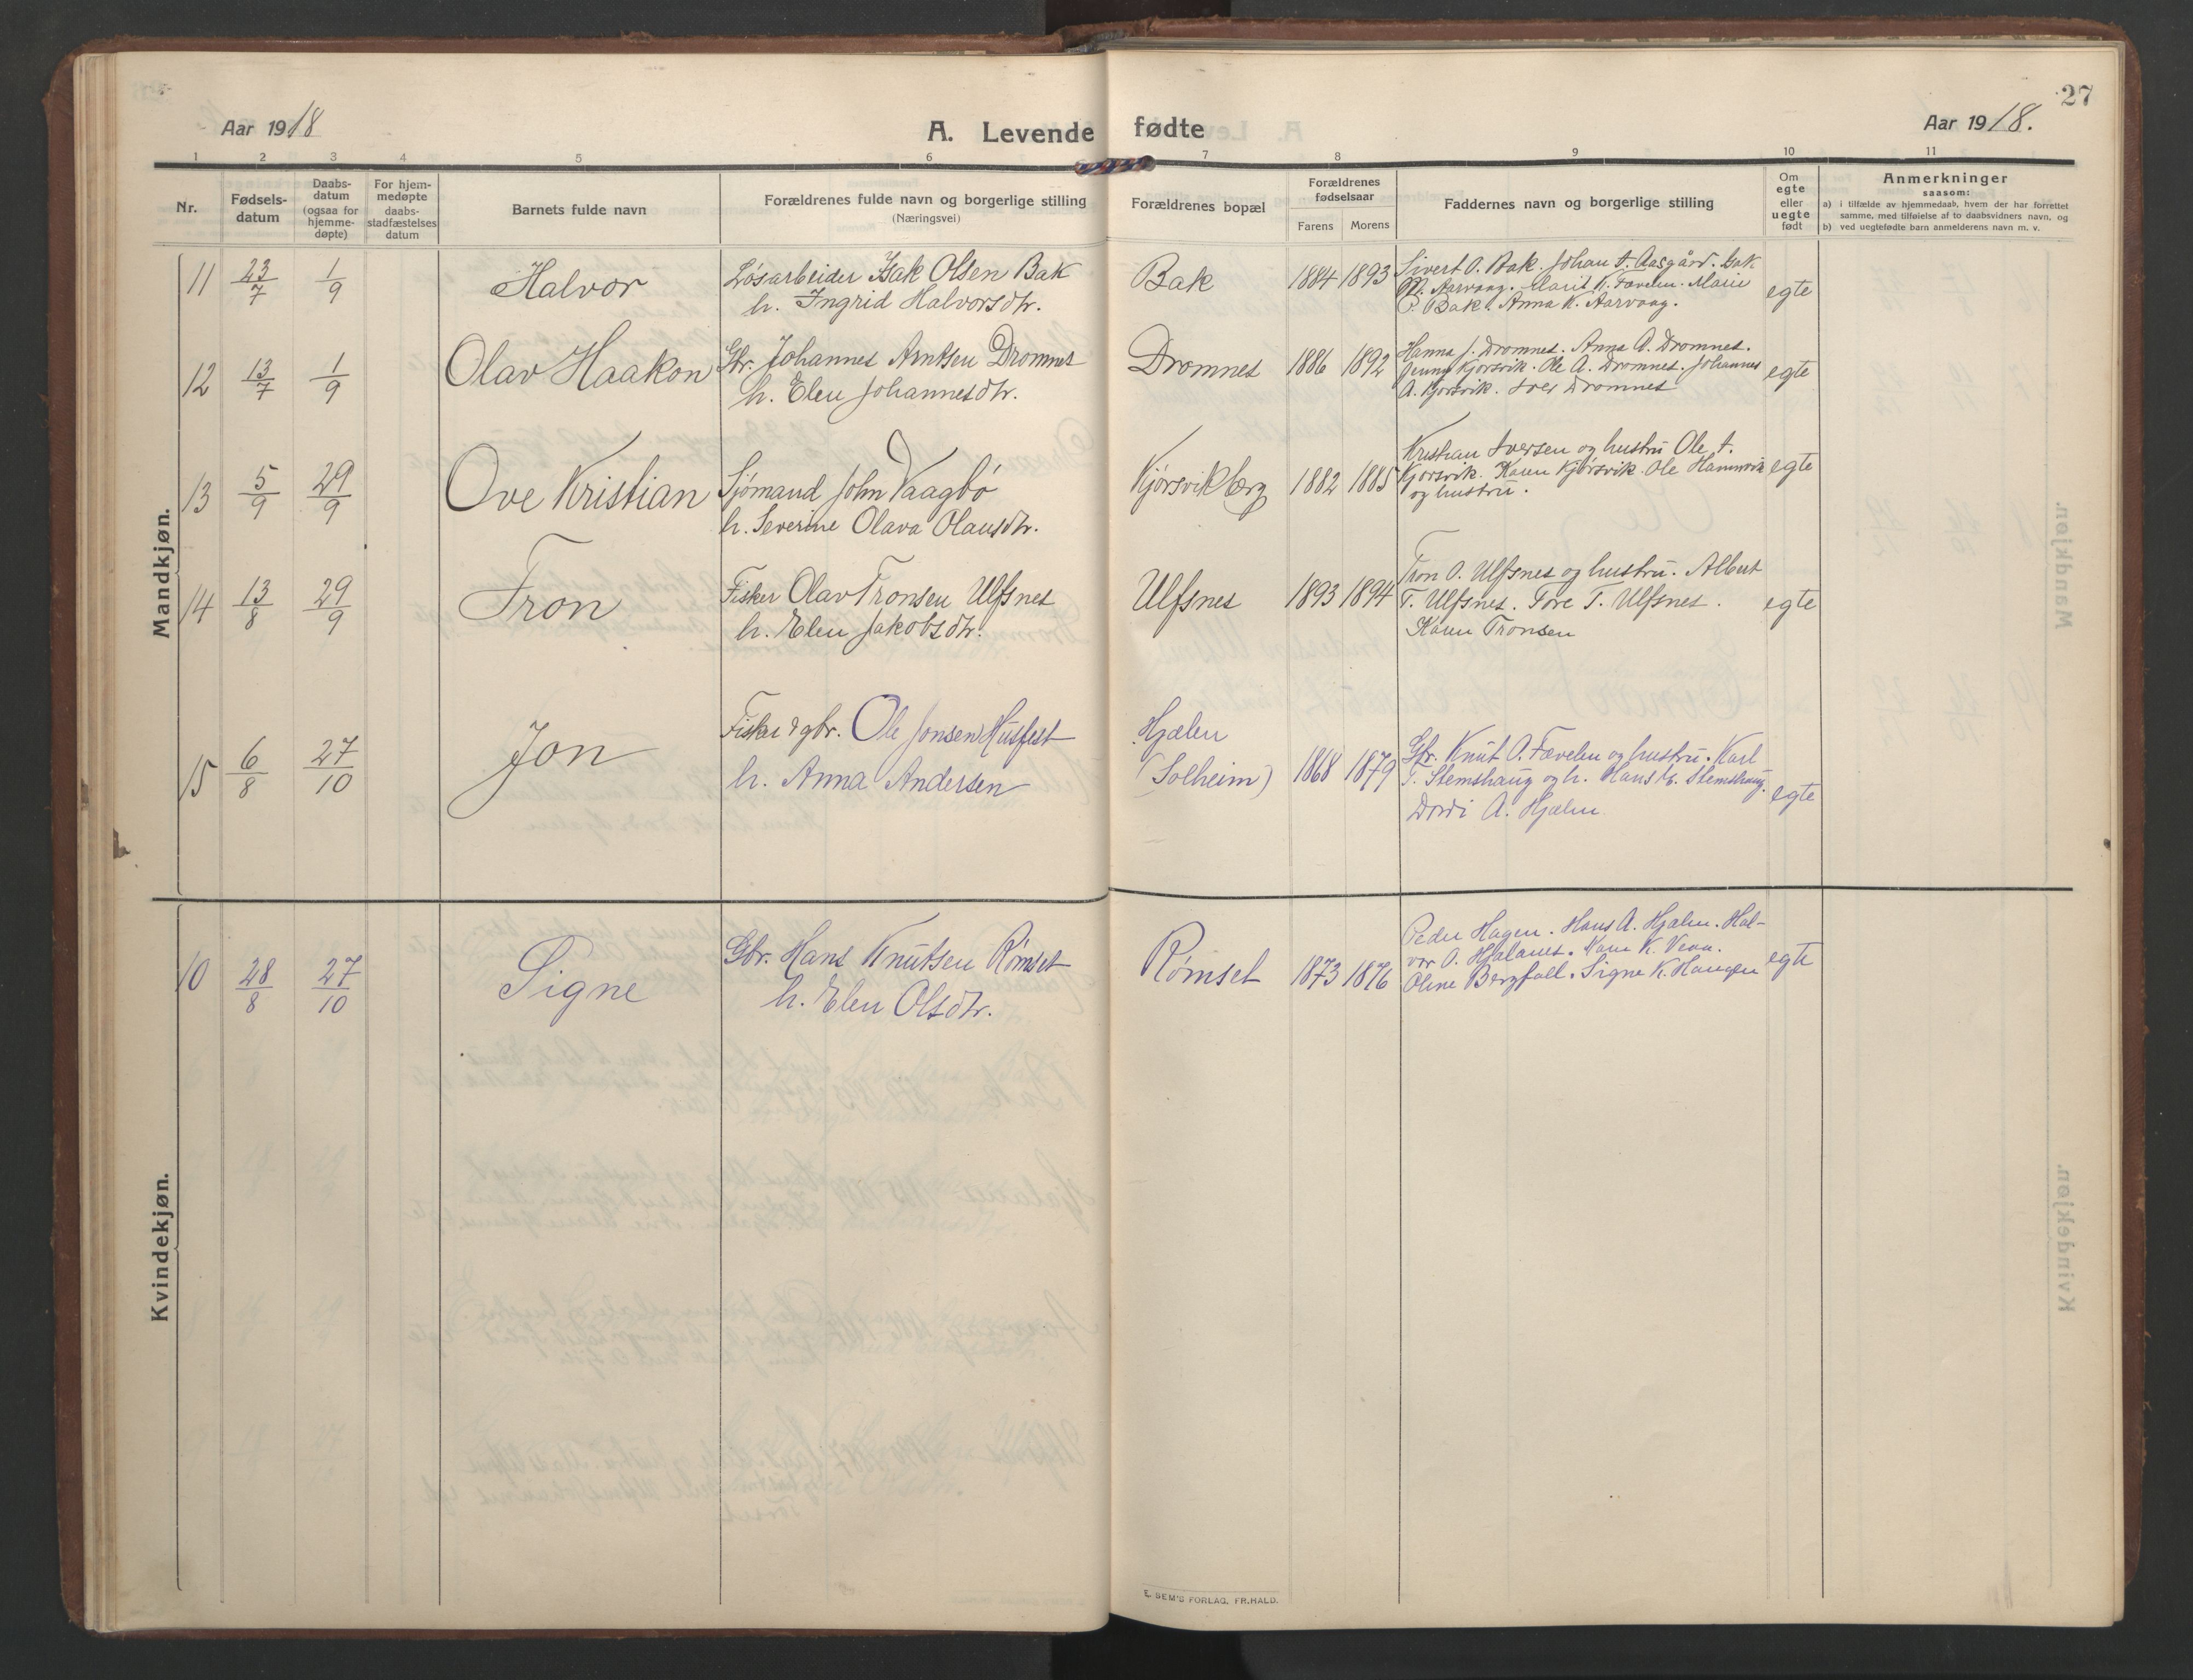 27
Aar 1918
A. Levende fødte
Aar 1918.
1 2 3 4 5 6 7 8 9 10 11
Nr.
Fødsels-
datum
Daabs-
datum
(ogsaa for
hjemme-
døpte)
For hjem-
medøpte
daabs-
stadfæstelses
datum
Barnets fulde navn
Forældrenes fulde navn og borgerlige stilling
(Næringsvei)
Forældrenes bopæl
Forældrenes
fødselsaar
Farens Morens
Faddernes navn og borgerlige stilling
Om
egte
eller
uegte
født
Anmerkninger
saasom:
a) i tilfælde av hjemmedaab, hvem der har forrettet
samme, med tilføielse af to daabsvidners navn, og
b) ved uegtefødte barn anmelderens navn m. v.
Mandkjøn.
11
23/7
1/9
Halvor
Løsarbeider Isak Olsen Bak
h. Ingrid Halvorsdtr.
Bak
1884 1893
Sivert O. Bak. Johan A. Aasgård. Isak
M. Aarvaag. Marit K. Fævelen. Marie
O. Bak. Anna K. Aarvaag.
egte
12
13/7
1/9
Olav Haakon
Gbr. Johannes Arntsen Dromnes
h. Elen Johannesdtr.
Dromnes
1886 1892
Hanna J. Dromnes. Anna A. Dromnes.
Jenny Kjørsvik. Ole A. Dromnes. Johannes
A. Kjørsvik. Iver Dromnes
egte
13
5/9
29/9
Ove Kristian
Sjømand John Vaagbø
h. Severine Olava Olausdtr.
Kjørsvikberg
1882 1885
Kristian Iversen og hustru Ole I.
Kjørsvik. Karen Kjørsvik. Ole Hamnvik
og hustru.
egte
14
13/8
29/9
Tron
Fisker Olav Tronsen Ulfsnes
h. Elen Jakobsdtr.
Ulfsnes
1893 1894
Tron O. Ulfsnes og hustru. Albert
T. Ulfsnes. Tore T. Ulfsnes.
Karen Tronsen
egte
15
6/8
27/10
Jon
Fisker & gbr. Ole Jonsen Husfest
h. Anna Andersen
Hjælen
(Solheim)
1868 1879
Gbr. Knut O. Fævelen og hustru. Karl
T. Stemshaug og h. Hans E. Stemshaug.
Dordi A. Hjælen
egte
Kvindekjøn.
10
28/8
27/10
Signe
Gbr. Hans Knutsen Rømset
h. Elen Olsdtr.
Rømset
1873 1876
Peder Hagen. Hans A. Hjælen. Hal-
vor O. Hjelanes. Karen K. Venn.
Oline Bergfall. Signe K. Haugen
egte
E. SEM'S FORLAG, FR.HALD.